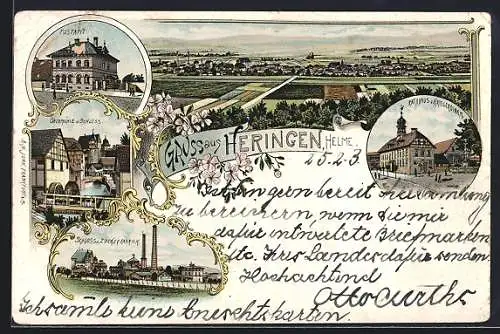 POSTAMT
OBERMÜHLE u. SCHLOSS
GRUSS aus HERINGEN, HELME.
RATHAUS u. KRIEGERDENKM.
25.2.3
Bin gern bereit Ihre Sammlung
zu bereichern, wenn Sie mir
dafür entwertete Briefmarken
etc. Ihres Landes dafür senden.
SCHLOSS u. ZUCKERFABRIK
Hochachtend
Otto Curths
Ich sammle keine Ansichtskarten.